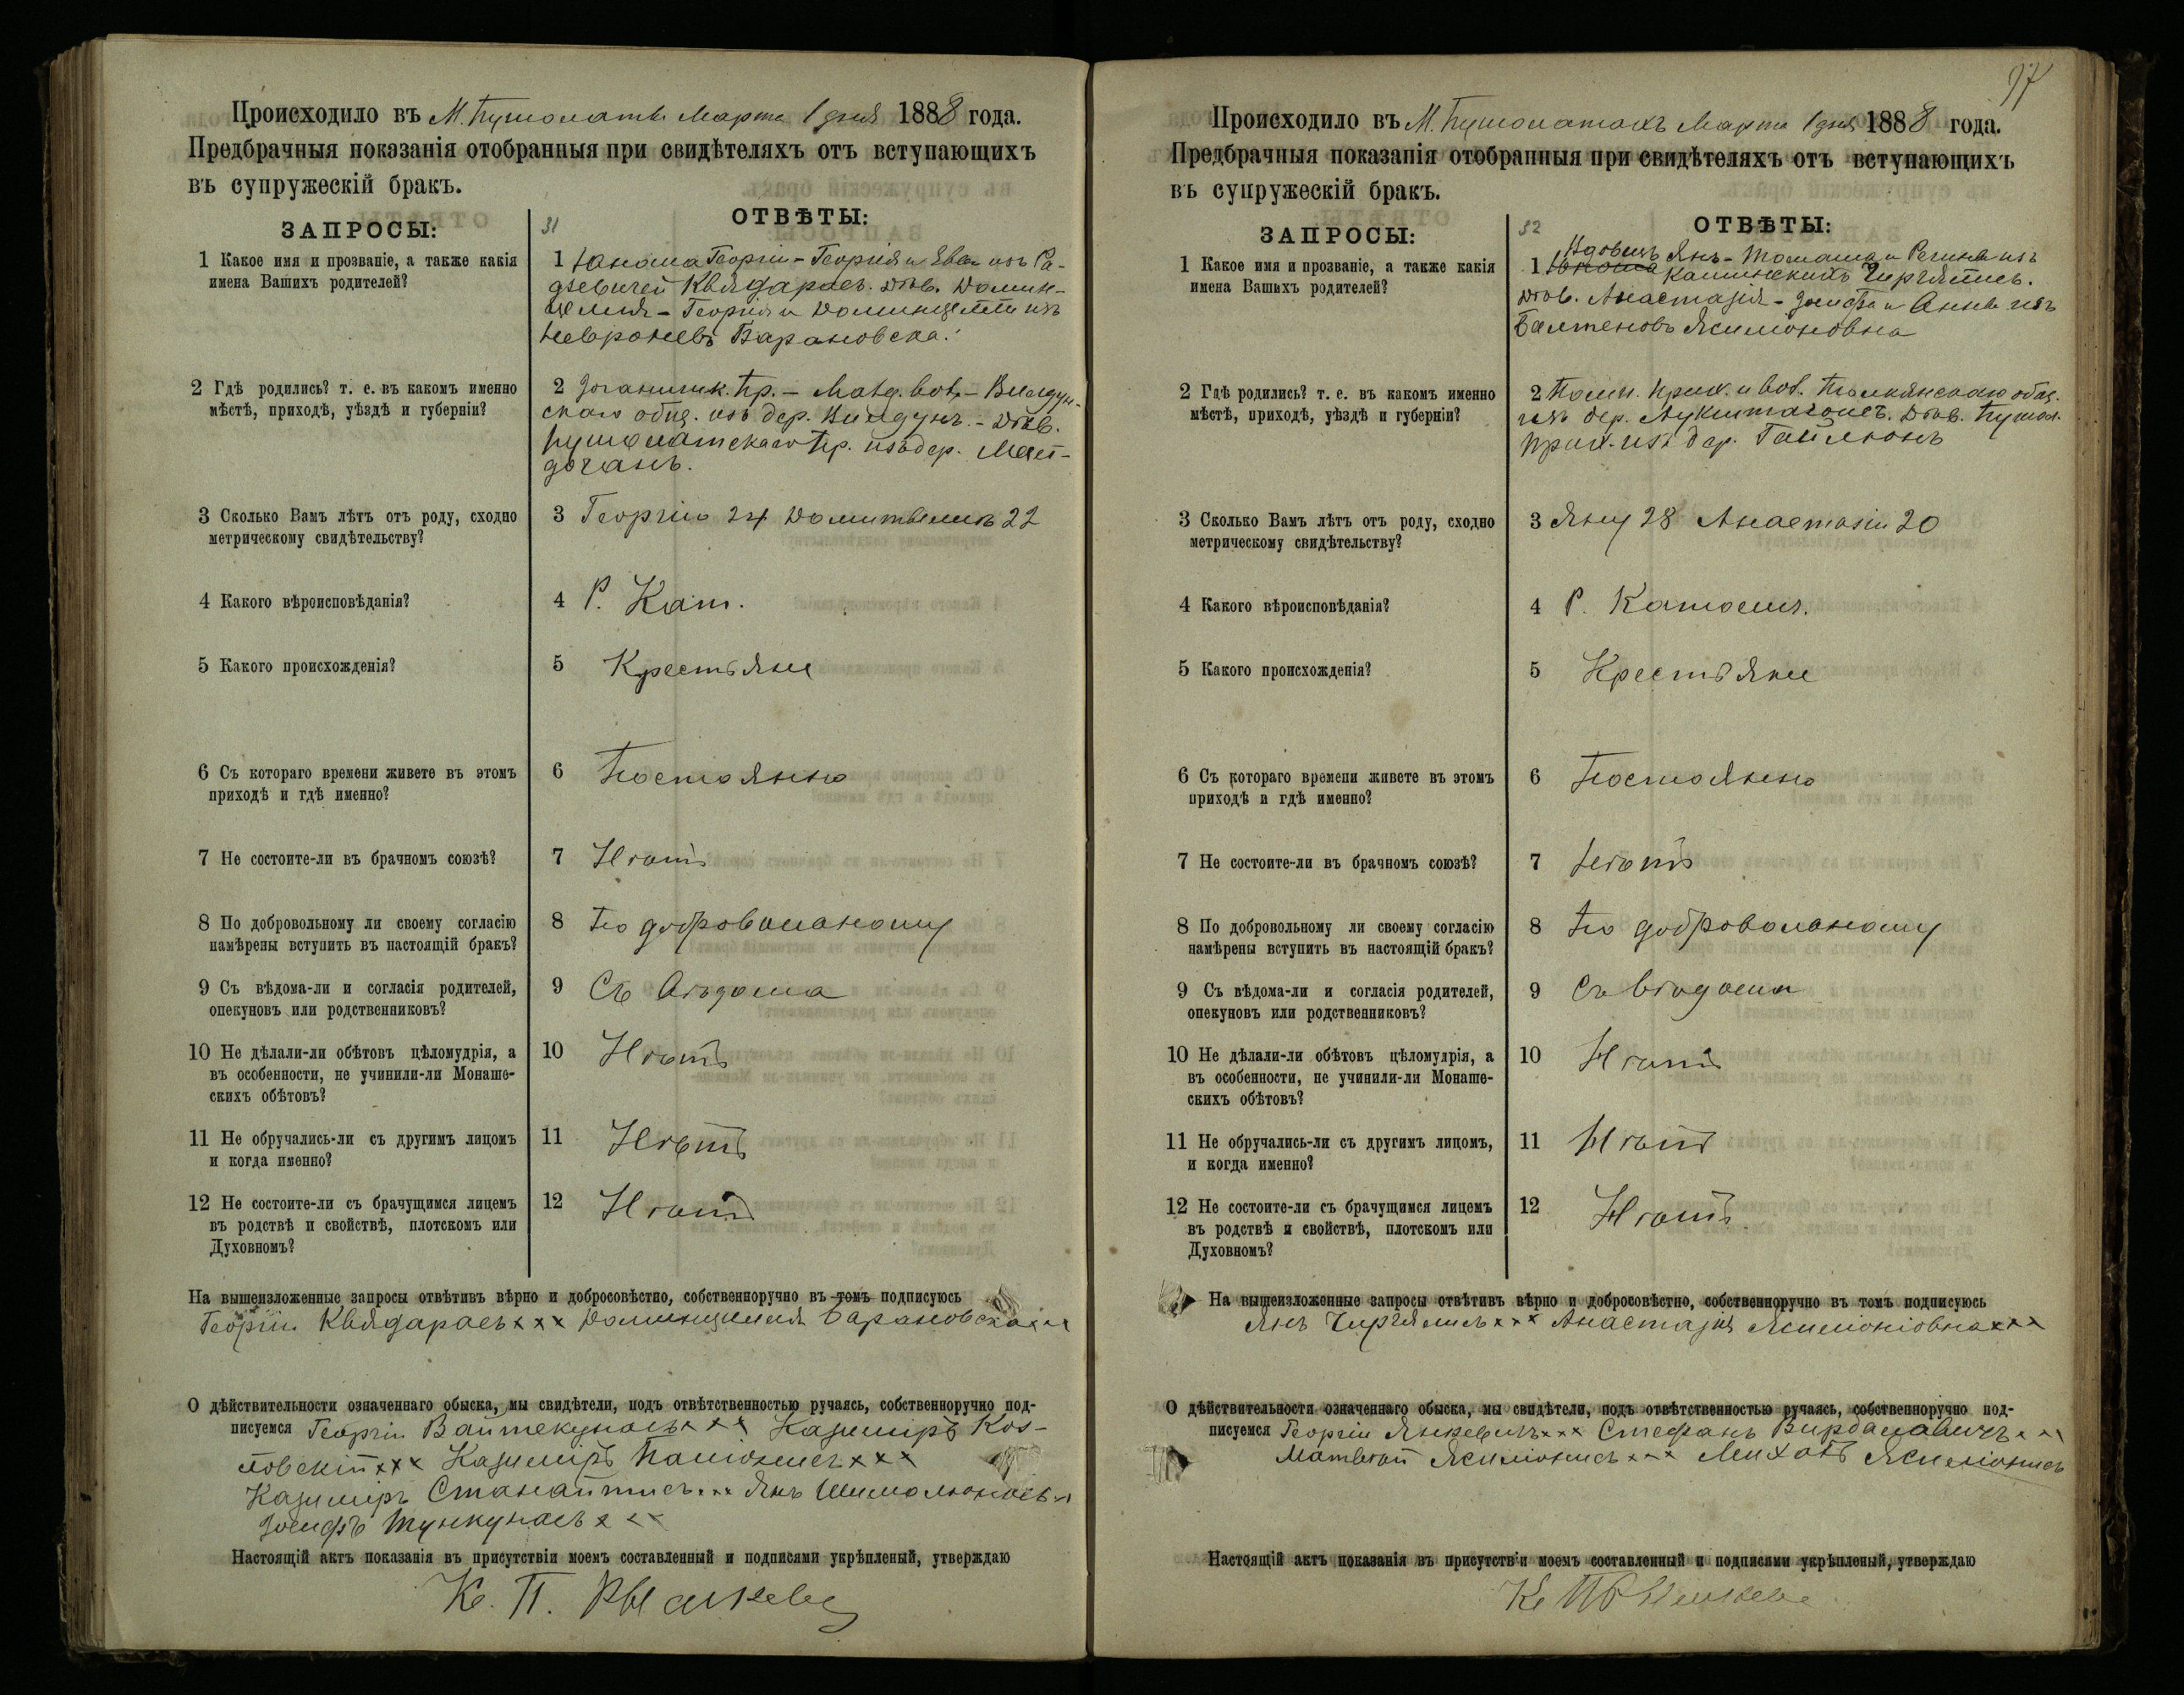 Происходило въ М. Пушолатѣ Марта 1 дня 1888 года.
Предбрачныя показанія отобранныя при свидѣтеляхъ отъ вступающихъ
въ супружескій бракъ.
ЗАПРОСЫ:
31
ОТВѢТЫ:
1 Какое имя и прозваніе, а также какія
имена Вашихъ родителей?
1 Юноша Георгій - Георгія и Евы изъ Ра-
дзевичей Квядарасъ. Дѣв. Домин-
целля - Георгія и Доминцелли изъ
Барановска.
2 Гдѣ родились? т. е. въ какомъ именно
мѣстѣ, приходѣ, уѣздѣ и губерніи?
2 Пр. - Вол. -
скаго общ. изъ дер. - Дѣв.
Пушолатскаго Пр. изъ дер. Мей-
3 Сколько Вамъ лѣтъ отъ роду, сходно
метрическому свидѣтельству?
3 Георгію 24 22
4 Какого вѣроисповѣданія?
4 Р. Кат.
5 Какого происхожденія?
5 Крестьяне
6 Съ котораго времени живете въ этомъ
приходѣ и гдѣ именно?
6 Постоянно
7 Не состоите-ли въ брачномъ союзѣ?
7 Нѣтъ
8 По добровольному ли своему согласію
намѣрены вступить въ настоящій бракъ?
8 По добровольному
9 Съ вѣдома-ли и согласія родителей,
опекуновъ или родственниковъ?
9 Съ вѣдома
10 Не дѣлали-ли обѣтовъ цѣломудрія, а
въ особенности, не учинили-ли Монаше-
скихъ обѣтовъ?
10 Нѣтъ
11 Не обручались-ли съ другимъ лицомъ
и когда именно?
11 Нѣтъ
12 Не состоите-ли съ брачущимся лицемъ
въ родствѣ и свойствѣ, плотскомъ или
Духовномъ?
12 Нѣтъ
На вышеизложенные запросы отвѣтивъ вѣрно и добросовѣстно, собственноручно въ томъ подписуюсь
Георгій Квядарасъ xxx Доминцелля Барановска xxx
О дѣйствительности означеннаго обыска, мы свидѣтели, подъ отвѣтственностью ручаясь, собственноручно под-
писуемся Георгій Вайтекунасъ xxx Казимиръ Коз-
ловскій xxx Казимиръ xxx
Казимиръ Станайтисъ xxx Янъ Шимолюнасъ xx
Іосифъ Тункунасъ xxx
Настоящій актъ показанія въ присутствіи моемъ составленный и подписями укрѣпленый, утверждаю
К. П.
97
Происходило въ М. Пушолатахъ Марта 1 дня 1888 года.
Предбрачныя показанія отобранныя при свидѣтеляхъ отъ вступающихъ
въ супружескій бракъ.
ЗАПРОСЫ:
32
ОТВѢТЫ:
1 Какое имя и прозваніе, а также какія
имена Вашихъ родителей?
Вдовецъ Янъ - Томаша и Регины изъ
1 Юноша Чиргялисъ.
Дѣв. Анастазія - Іосифа и Анны изъ
Балтеновъ Ясилюновна
2 Гдѣ родились? т. е. въ какомъ именно
мѣстѣ, приходѣ, уѣздѣ и губерніи?
2 Прих. и Вол. общ.
изъ дер. Дѣв. Пушол.
прих. изъ дер. Гайлюнъ
3 Сколько Вамъ лѣтъ отъ роду, сходно
метрическому свидѣтельству?
3 Яну 28 Анастазіи 20
4 Какого вѣроисповѣданія?
4 Р. Католич.
5 Какого происхожденія?
5 Крестьяне
6 Съ котораго времени живете въ этомъ
приходѣ и гдѣ именно?
6 Постоянно
7 Не состоите-ли въ брачномъ союзѣ?
7 Нѣтъ
8 По добровольному ли своему согласію
намѣрены вступить въ настоящій бракъ?
8 По добровольному
9 Съ вѣдома-ли и согласія родителей,
опекуновъ или родственниковъ?
9 Съ вѣдома
10 Не дѣлали-ли обѣтовъ цѣломудрія, а
въ особенности, не учинили-ли Монаше-
скихъ обѣтовъ?
10 Нѣтъ
11 Не обручались-ли съ другимъ лицомъ,
и когда именно?
11 Нѣтъ
12 Не состоите-ли съ брачущимся лицемъ
въ родствѣ и свойствѣ, плотскомъ или
Духовномъ?
12 Нѣтъ.
На вышеизложенные запросы отвѣтивъ вѣрно и добросовѣстно, собственноручно въ томъ подписуюсь
Янъ Чиргялисъ xxx Анастазія Ясилюновна xxx
О дѣйствительности означеннаго обыска, мы свидѣтели, подъ отвѣтственностью ручаясь, собственноручно под-
писуемся Георгій Янкевичъ xxx Стефанъ xx
Матвѣй Ясилюнисъ xxx Ясилюнисъ
Настоящій актъ показанія въ присутствіи моемъ составленный и подписями укрѣпленый, утверждаю
К. П.